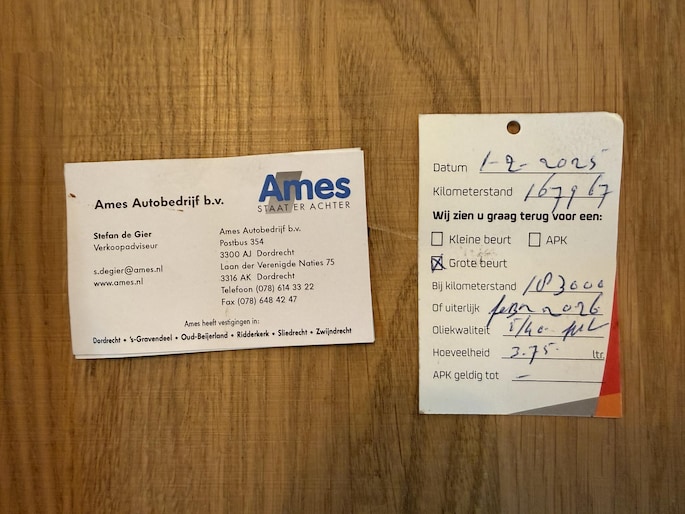 Ames Autobedrijf b.v.
Ames
STAAT ER ACHTER
Stefan de Gier
Verkoopadviseur
s.degier@ames.nl
www.ames.nl
Ames Autobedrijf b.v.
Postbus 354
3300 AJ Dordrecht
Laan der Verenigde Naties 75
3316 AK Dordrecht
Telefoon (078) 614 33 22
Fax (078) 648 42 47
Ames heeft vestigingen in:
Dordrecht • 's-Gravendeel • Oud-Beijerland • Ridderkerk • Sliedrecht • Zwijndrecht
Datum 1-2-2025
Kilometerstand 167967
Wij zien u graag terug voor een:
Kleine beurt APK
Grote beurt
Bij kilometerstand 183000
Of uiterlijk 2026
Oliekwaliteit 5/40
Hoeveelheid 3.75 ltr.
APK geldig tot -